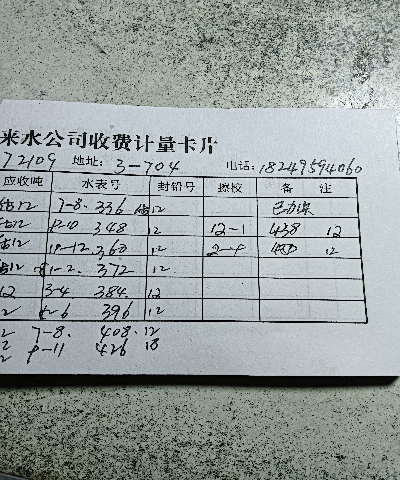 来水公司收费计量卡片
72109 地址: 3-704 电话: 18249594060
应收吨 水表号 封铅号 擦校 备 注
估12 7-8. 336 估12
估12 348 12 12-1 438 12
估12 11-12. 360 12 2-4 450 12
估12 1-2. 372 12
12 3-4 384 12
2 5-6 396 12
2 7-8. 408. 12
2 9-11 426 18
2